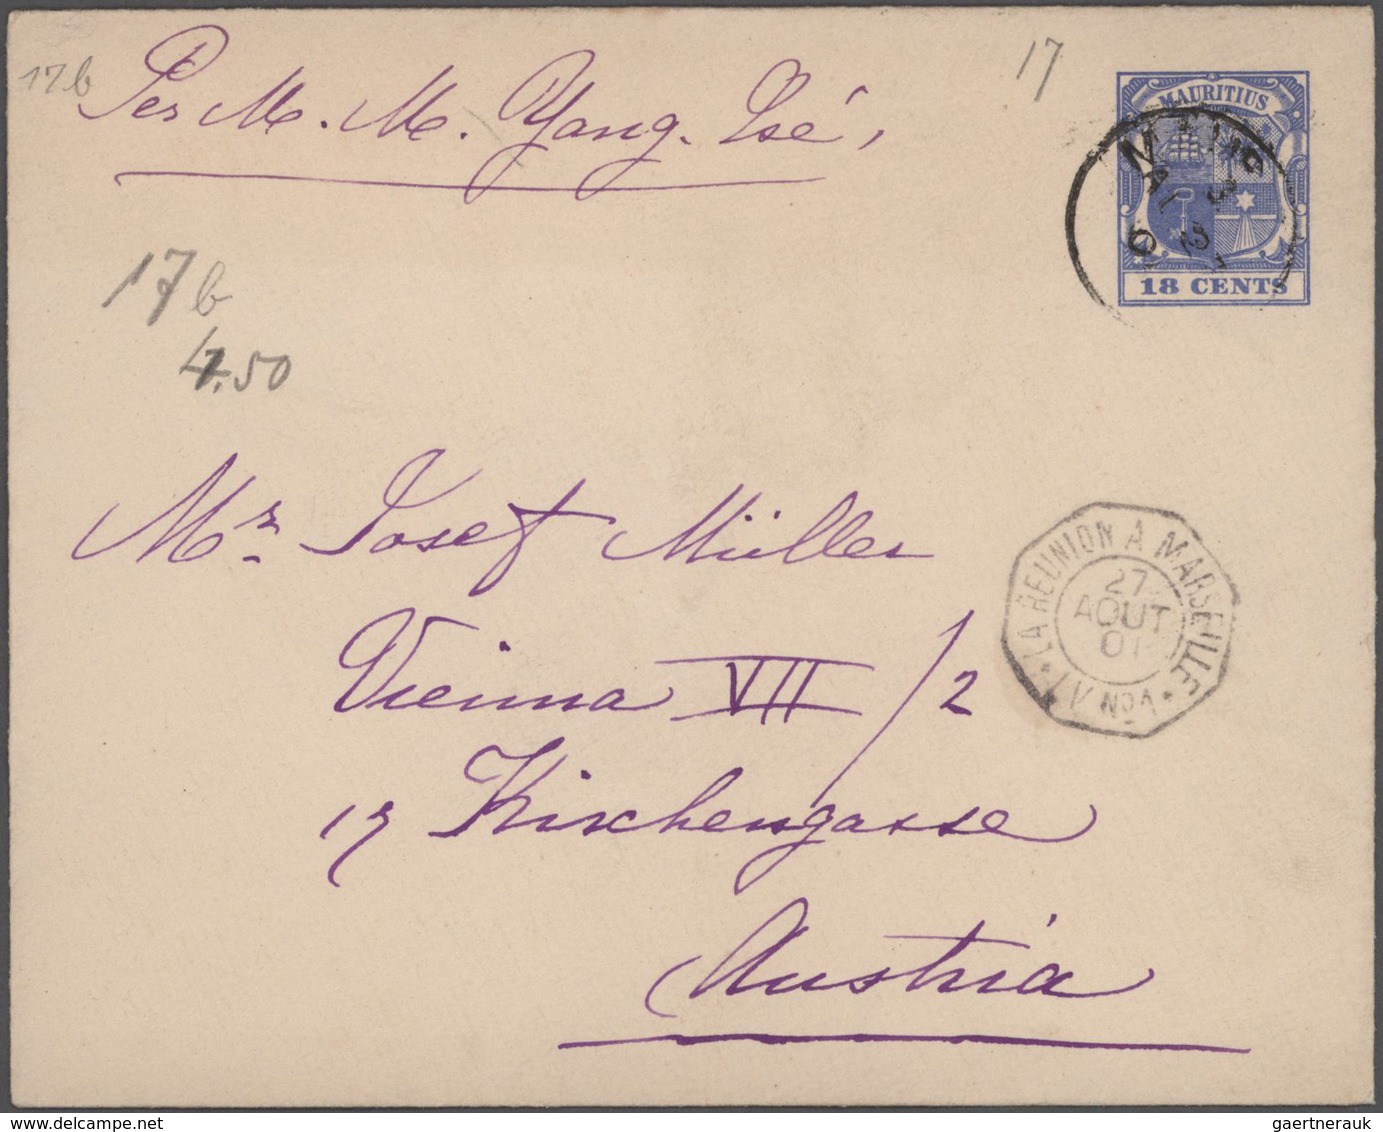 17b
Per M. M. Yang. Tsé,
17
MAURITIUS
18 CENTS
17b
4.50
Mr. Josef Müller
Vienna VII/2
17 Kirchengasse
Austria
LA REUNION A MARSEILLE
27
AOUT
01
gaertnerauk